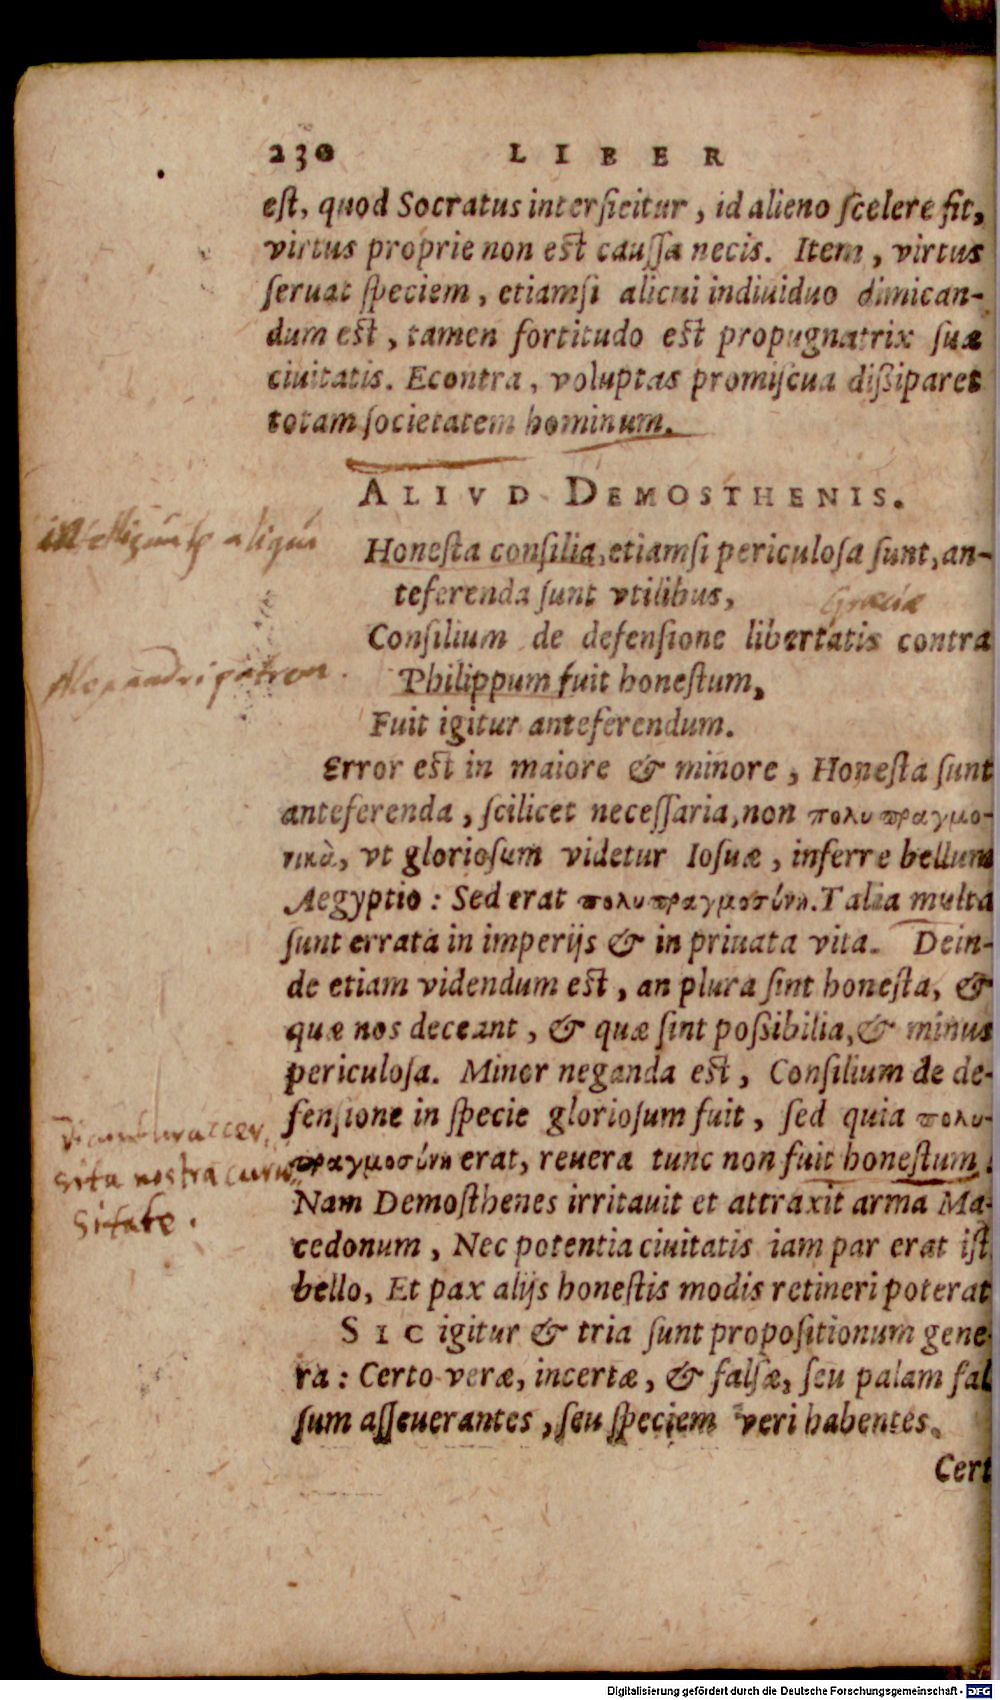 230 LIBER
est, quod Socratus interficitur, id alieno scelere fit,
virtus proprie non est caussa necis. Item, virtus
seruat speciem, etiamsi alicui indiuiduo dimican-
dum est, tamen fortitudo est propugnatrix suæ
ciuitatis. Econtra, voluptas promiscua dißiparet
totam societatem hominum.
ALIVD DEMOSTHENIS.
Honesta consilia, etiamsi periculosa sunt, an-
teferenda sunt vtilibus,
Græciæ
Consilium de defensione libertatis contra
Alexandri patrem.
Philippum fuit honestum,
Fuit igitur anteferendum.
Error est in maiore & minore, Honesta sunt
anteferenda, scilicet necessaria, non πολυπραγμο-
νικὰ, vt gloriosum videtur Iosuæ, inferre bellum
Aegyptio: Sed erat πολυπραγμοσύνη. Talia multa
sunt errata in imperijs & in priuata vita. Dein-
de etiam videndum est, an plura sint honesta, &
quæ nos deceant, & quæ sint poßibilia, & minus
periculosa. Minor neganda est, Consilium de de-
fensione in specie gloriosum fuit, sed quia πολυ-
accer,
πραγμοσύνη erat, reuera tunc non fuit honestum.
sita nostra curio
Nam Demosthenes irritauit et attraxit arma Ma-
sitate.
cedonum, Nec potentia ciuitatis iam par erat ist
bello, Et pax alijs honestis modis retineri poterat
SIC igitur & tria sunt propositionum gene-
ra: Certo veræ, incertæ, & falsæ, seu palam fal
sum asseuerantes, seu speciem veri habentes.
Cert
Digitalisierung gefördert durch die Deutsche Forschungsgemeinschaft - DFG